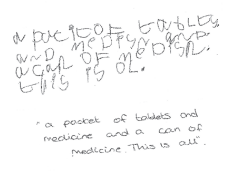 a pacit OF tablts
AND MeDisN AND
a can OF MeDisN.
this is ol.
"a packet of tablets and
medicine and a can of
medicine. This is all".